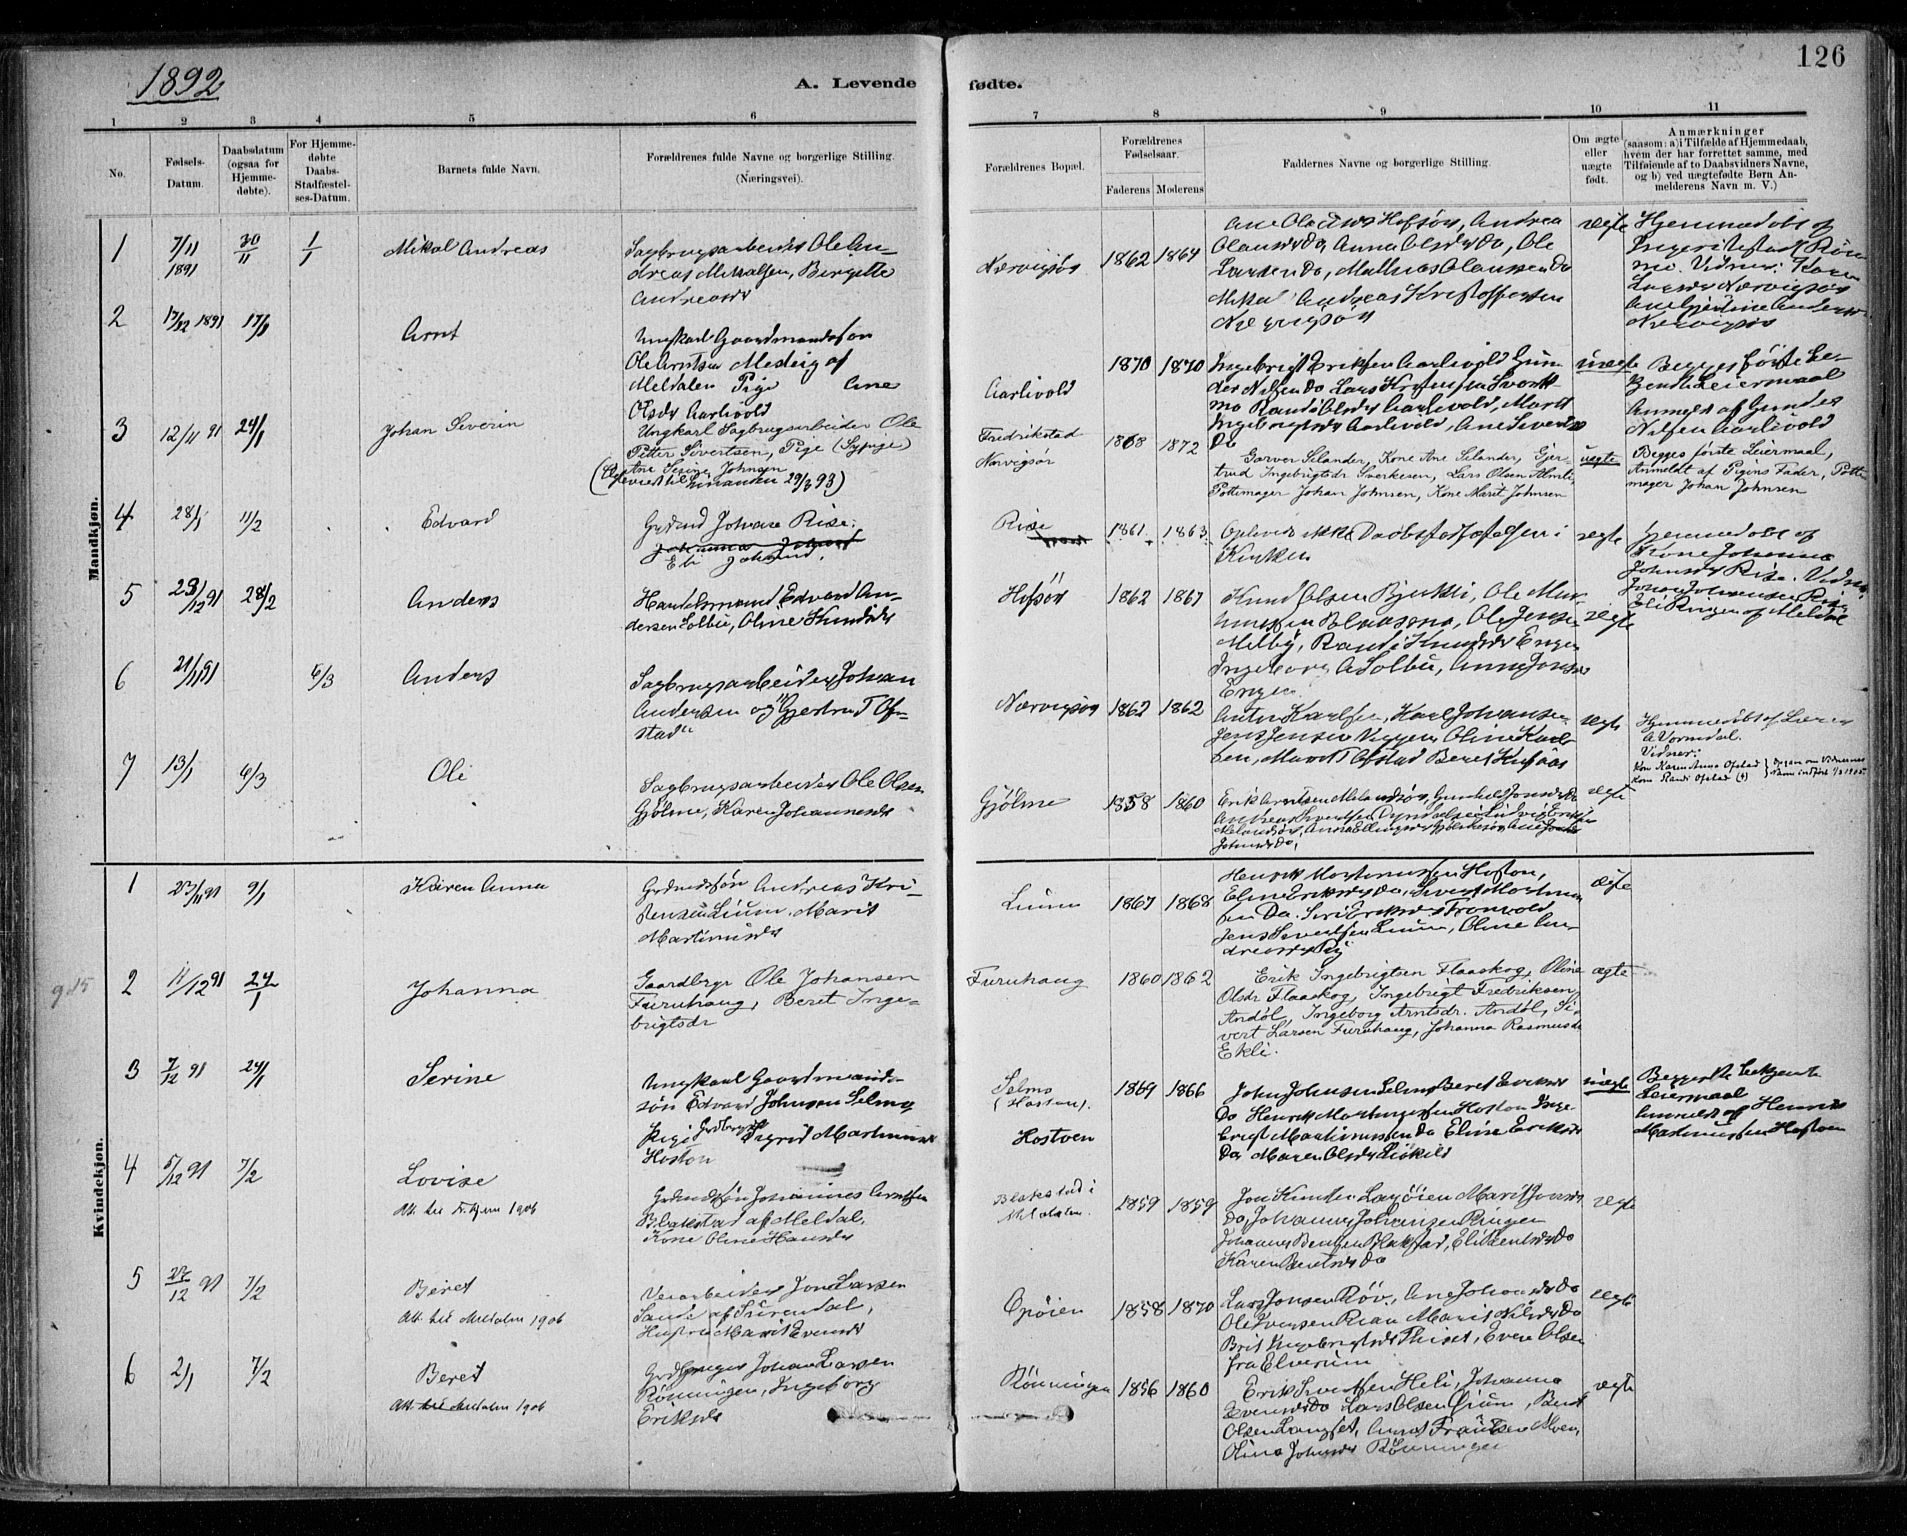 126
1892
A. Levende fødte.
1 2 3 4 5 6 7 8 9 10 11
No.
Fødsels-Datum.
Daabsdatum (ogsaa for Hjemme-døbte).
For Hjemme-døbte Daabs-Stadfæstel-ses-Datum.
Barnets fulde Navn.
Forældrenes fulde Navne og borgerlige Stilling.
(Næringsvei).
Forældrenes Bopæl.
Forældrenes Fødselsaar.
Faderens Moderens
Faddernes Navne og borgerlige Stilling.
Om ægte eller uægte født.
Anmærkninger
(saasom: a) i Tilfælde af Hjemmedaab,
hvem der har forrettet samme, med
Tilføiende af to Daabsvidners Navne,
og b) ved uægtefødte Børn An-
melderens Navn m. V.)
Mandkjøn.
1
7/11 1891
30/11
1/1
Mikal Andreas
Sagbrugsarbeider Ole An-
dreas Mikalsen, Birgitte
Andreasdr
Nærvigsør
1862 1864
Olausdr Do Anna Olsdr Do, Ole
Larsen Do, Mathias Olaussen Do
Mikal Andreas Kristoffersen
Nærvigsør
ægte
Hjemmedøbt af
Vidner: Karen
Larsdr Nærvigsør
Nærvigsør
2
17/12 1891
17/1
Arnt
Ungkarl Gaardmandssøn
Ole Arntsen
Meldalen Pige Ane
Olsdr Aarlivold
Aarlivold
1870 1870
Ingebrigt Eriksen Aarlivold Gun-
der Nilsen Do Lars Kristensen Svork-
mo Randi Olsdr Aarlivold, Marit
Ingebrigtsdr Aarlivold, Ane Sivertsdr
Do
uægte
Begges første be-
kjendte Leiermaal
Anmeldt af Gunder
Nilsen Aarlivold
3
12/11 91
24/1
Johan Severin
Ungkarl Sagbrugsarbeider Ole
Petter Sivertsen, Pige (Sypige)
Ane Serine Johnsen
29/3 93)
Fredrikstad
Nærvigsør
1868 1872
Garver Selander, Kone Ane Selander, Gjer-
trud Ingebrigtsdr Sverkesen, Lars Olsen Almli,
Pottemager Johan Johnsen, Kone Marit Johnsen
uægte
Begges første Leiermaal,
Anmeldt af Pigens Fader, Potte-
mager Johan Johnsen
4
28/1
11/2
Edvard
Grdmd Johan Rise.
Rise
1861 1863
Oplevede ikke Daabsstadfæstelsen i
Kirken
ægte
Hjemmedøbt af
Kone Johanna
Johnsdr Rise. Vidner
Johan Johansen Rise
Eli Ringen af Meldal
5
23/12 91
28/2
Anders
Handelsmand Edvard An-
dersen Solbu, Oline Knudsdr
Hofsør
1862 1867
Knud Olsen Bjerkli, Ole
Ole Jensen
Melby, Randi Knudsdr Engen
Ingeborg A Solbu, Anne Jonsdr
Engen.
ægte
6
21/11 91
6/3
Anders
Sagbrugsarbeider Johan
Andersen og Gjertrud Of-
stad
Nærvigsør
1862 1862
Anton Karlsen, Karl Johansen
Jens Jensen Viggen, Oline Karl-
sen, Marit Ofstad Beret Kufaas
ægte
Hjemmedøbt af Lærer
A Vormdal.
Vidner:
Kone Karen Anna Ofstad
Kone Randi Ofstad
7
13/1
6/3
Oli
Sagbrugsarbeider Ole Olsen
Gjølme, Karen Johannesdr
Gjølme
1858 1860
Erik Arntsen Melandsør, Gunhild Jonsdr Do
Johnsdr Do.
ægte
Kvindekjøn.
1
23/11 91
9/1
Karen Anna
Grdmdssøn Andreas Kri-
stensen Lium, Marit
Martinusdr
Lium
1867 1868
Henrik Martinussen Hoston,
Eline Eriksdr Do, Sivert Martinus-
sen Do. Siri Eriksdr Tronvold
Jens Sivertsen Lium, Oline An-
dreasdr
ægte
g. 15
2
11/12 91
24/1
Johanna
Gaardbrgr Ole Johansen
Furuhaug, Beret Inge-
brigtsdr
Furuhaug
1860 1862
Erik Ingebrigtsen Flaaskog, Oline
Olsdr Flaaskog, Ingebrigt Fredriksen
Andøl, Ingeborg Arntsdr. Andøl, Si-
vert Larsen Furuhaug, Johanna Rasmusdr
Ekli.
ægte
3
7/12 91
24/1
Serine
Ungkarl Gaardmands-
søn Edvard Johnsen Selmo
Pige Ingrid Martinusdr
Hoston
Selmo
(Hoston).
Hostven
1869 1866
John Johnsen Selmo Beret Eriksdr
Do Henrik Martinussen Hoston Inge-
brigt Martinussen Do Eline Eriksdr
Do, Maren Olsdr
uægte
Begges 1ste bekjente
Leiermaal
Anmeldt af Henrik
Martinussen Hostven
4
5/12 91
7/2
Lovise
Att. til Tr.hjem 1906
Grdmdssøn Johannes Arntsen
Blakstad af Meldal,
Kone Oline Hansdr
Blakstad i
Meldalen.
1859 1859
Jon Knudsen Laxøien Marit Jonsdr
Do, Johannes Johansen Ringen
Johannes Bentsen Blakstad, Eli Bentsdr Do
Karen Berntsdr Do
ægte
5
27/12 91
7/2
Beret
Att. til Meldalen 1906
Veiarbeider Jon Larsen
Sande af Surendal,
Hustru Marit Evensdr
Grøien
1858 1870
Lars Jonsen Røv, Ane Johansdr Do
Ole Iversen Rian Marit Nilsdr Do
Brit Ingebrigtsdr Thiset, Even Olsen
fra Elverum
ægte
6
2/1
7/2
Beret
Att. til Meldalen 1906
Grdbruger Johan Larsen
Rønningen, Ingeborg
Eriksdr
Rønningen
1856 1860
Erik Sivertsen Heli, Johanna
Evensdr Do Lars Olsen Grium, Bent
Olsen Langset, Anna Frantsen Moen,
Olina Johnsdr Rønningen
ægte